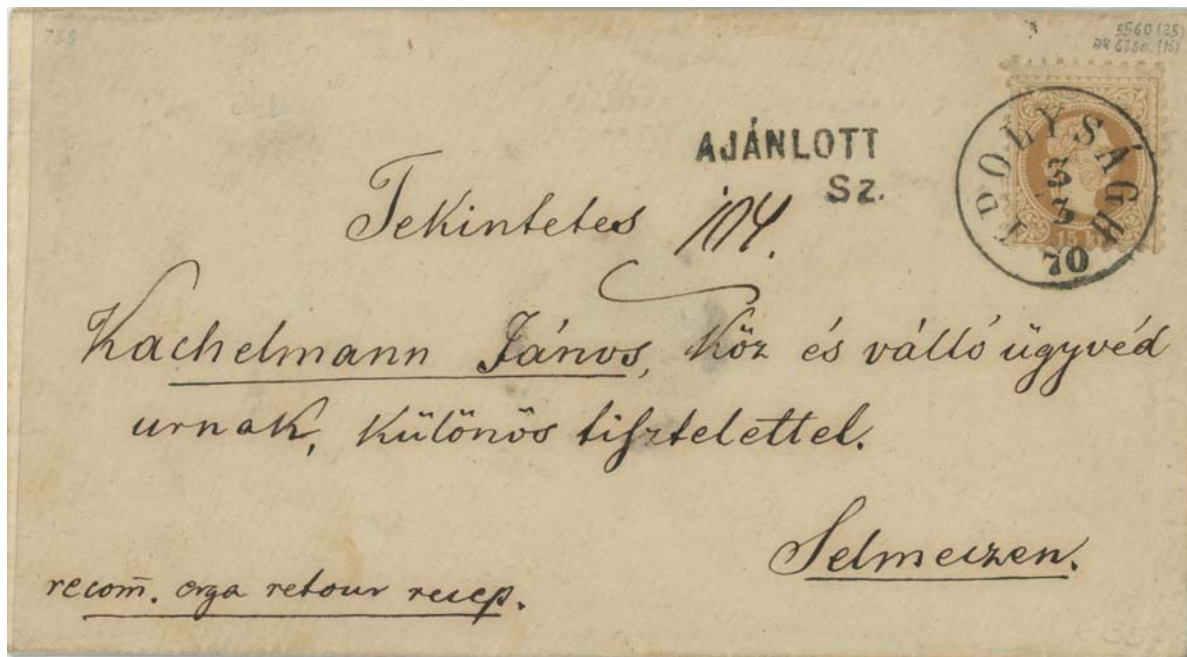 AJÁNLOTT
Sz.
IPOLYSÁGH
3
3
70
Tekintetes 104.
Kachelmann János, Köz és válló ügyvéd
urnak, különös tisztelettel.
Selmeczen.
recom̄. erga retour recep.